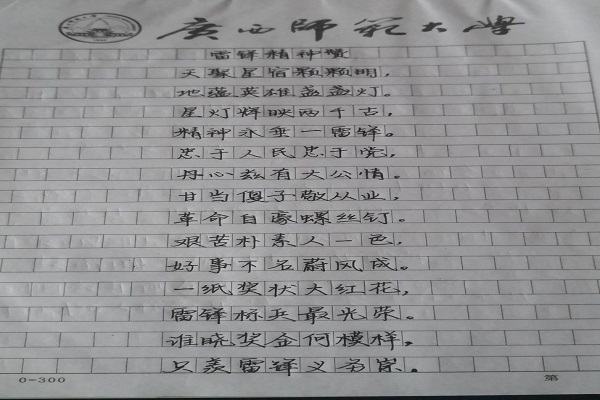 广西师范大学
雷锋精神赞
天聚星宿颗颗明，
地蕴英雄盏盏灯。
星灯辉映两千古，
精神永垂一雷锋。
忠于人民忠于党，
丹心兹有大公情。
甘当傻子敬从业，
革命自豪螺丝钉。
艰苦朴素人一色，
好事不名蔚风成。
一纸奖状大红花，
雷锋标兵最光荣。
谁晓奖金何模样，
只羡雷锋义务崇。
0-300
第